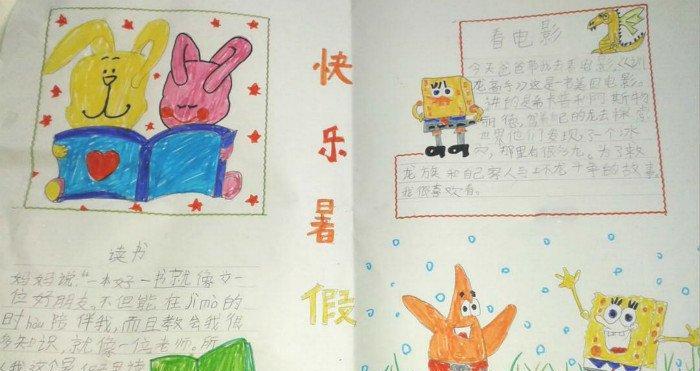 快
乐
暑
假
读书
妈妈说："一本好一书就像交一
位好朋友。不但能在jimò的
时hou陪伴我，而且教会我很
多知识，就像一位老师。所
看电影
今天爸爸带我去看电影《驯
龙高手2》这是一部美国电影。
讲的是希卡普和阿斯特
世界他们发现了一个冰
穴，那里有很多龙。为了救
龙族和自己家人与坏龙斗争的故事
我很喜欢看。